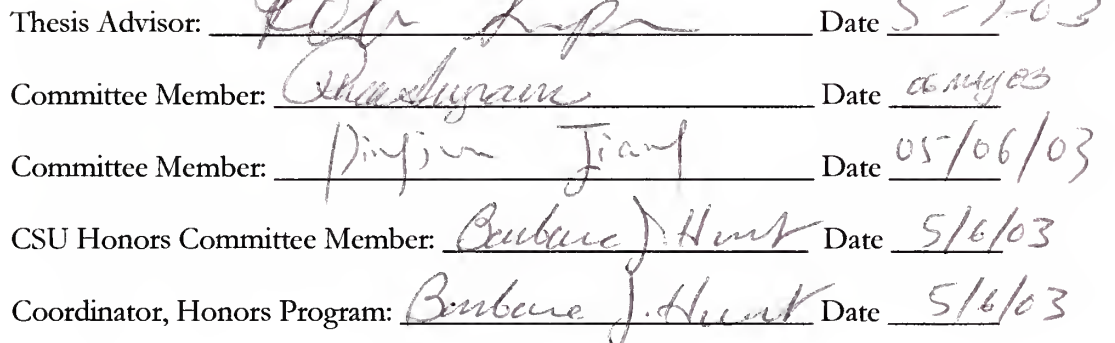 Thesis Advisor: Date 5-7-03
Committee Member: Date 06 May 03
Committee Member: Date 05/06/03
CSU Honors Committee Member: Barbara J. Hunt Date 5/6/03
Coordinator, Honors Program: Barbara J. Hunt Date 5/6/03